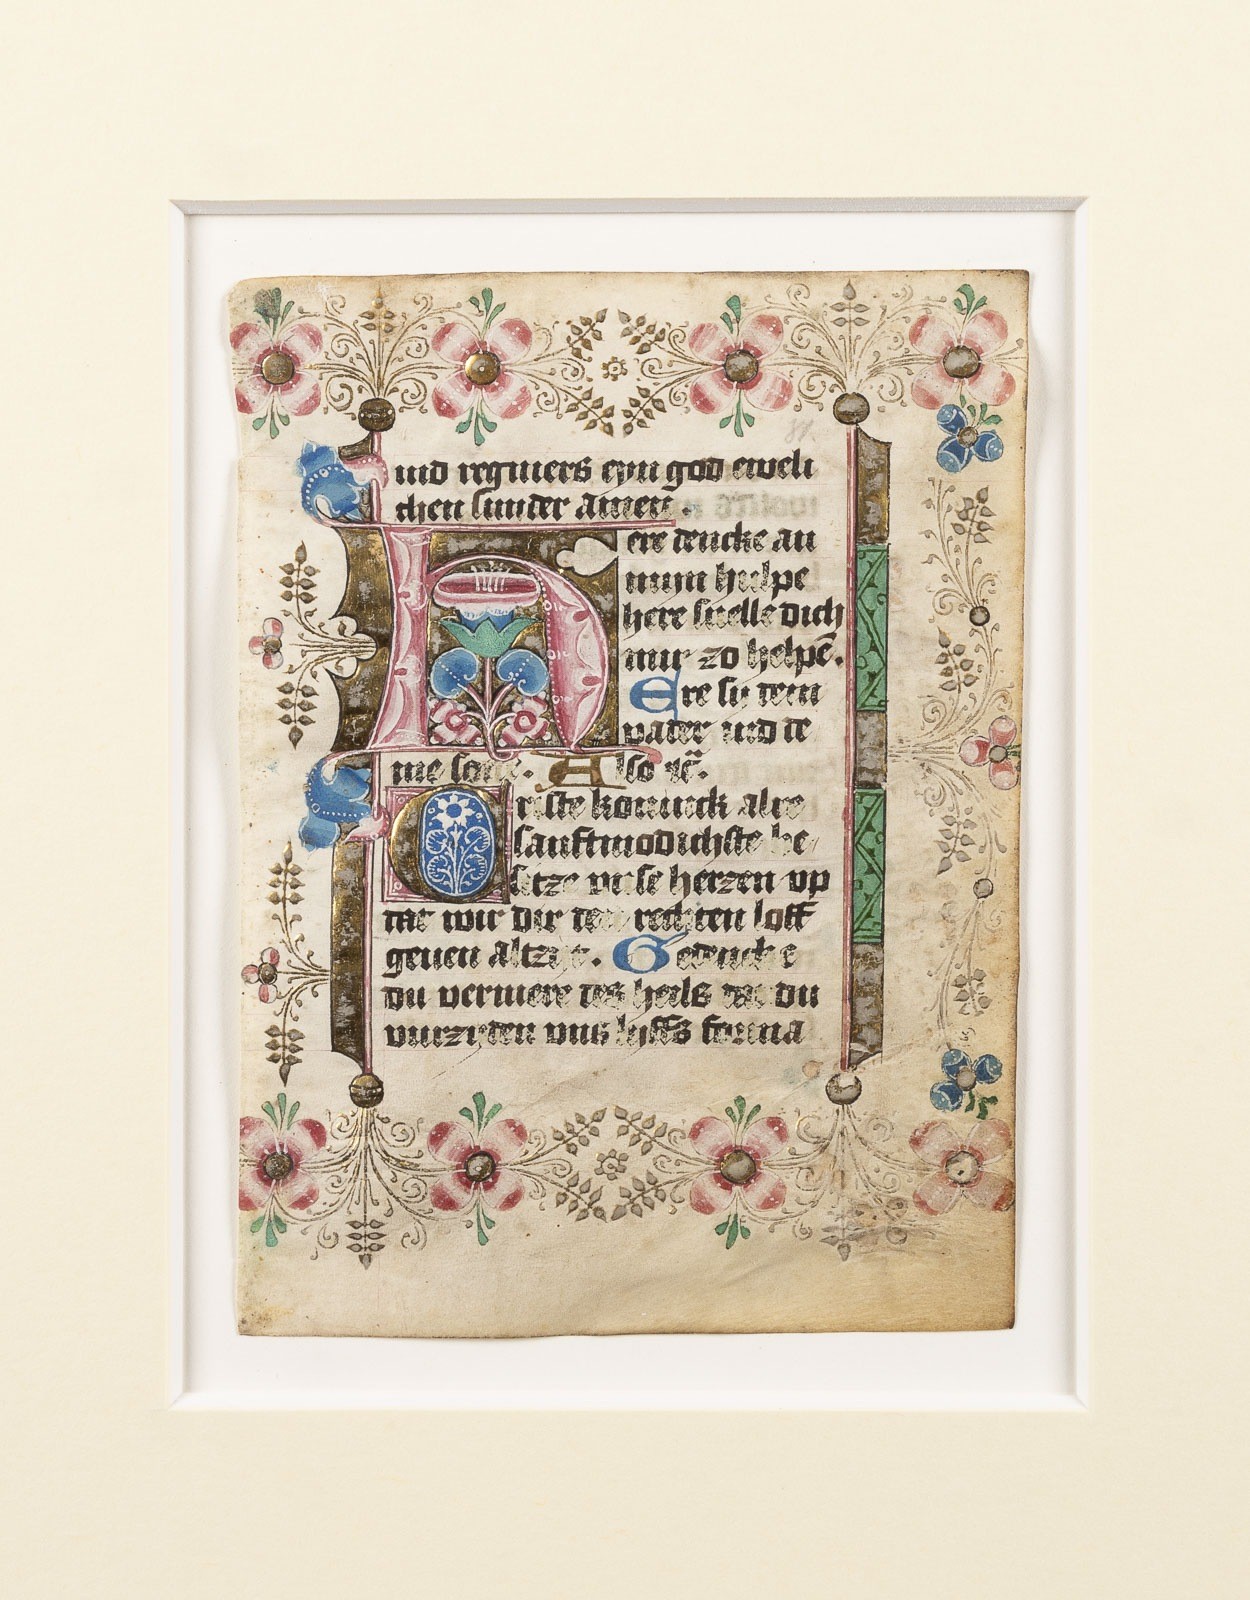 87.
und regniers eyn god eweli
chen sunder amen.
Here dencke an
myn hulpe
here snelle dich
mir zo helpē.
Ere sy dem
vader und de
me sone. Also
Criste konninck alre
sanftmodichste be
sitze unse herzen up
dat wir dir den rechten loff
geuen altzyt. Gedencke
du vermere des heils dat du
vurzyden uns lyffs forma